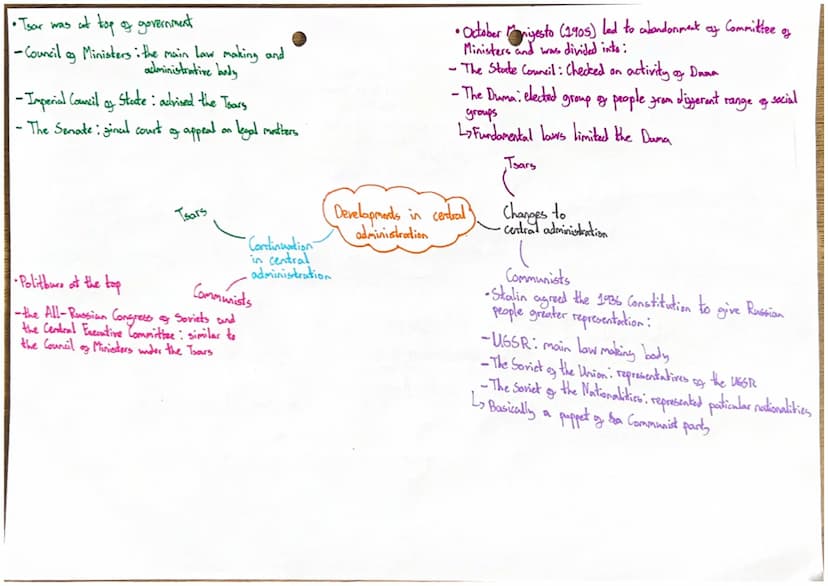 • Tsar was at top of government
- Council of Ministers: the main law making and
administrative body
- Imperial Council of State: advised the Tsars
- The Senate: final court of appeal on legal matters
• October Manifesto (1905) led to abandonment of Committee of
Ministers and was divided into:
- The State Council: Checked on activity of Duma
- The Duma: elected group of people from different range of social
groups
↳ Fundamental laws limited the Duma
Tsars
Changes to
central administration
Developments in central
administration
Tsars
Continuation
in central
administration
Communists
• Politburo at the top
- the All-Russian Congress of Soviets and
the Central Executive Committee: similar to
the Council of Ministers under the Tsars
Communists
• Stalin agreed the 1936 Constitution to give Russian
people greater representation:
- USSR: main law making body
- The Soviet of the Union: representatives of the USSR
- The Soviet of the Nationalities: represented paticular nationalities
↳ Basically a puppet of Communist party